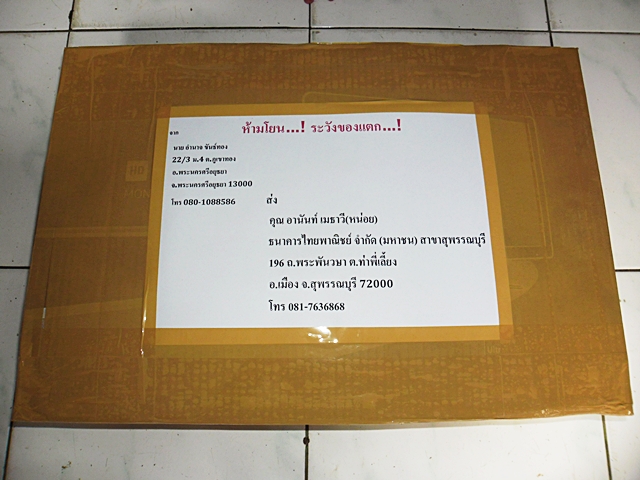 ห้ามโยน...! ระวังของแตก...!
จาก
นาย อำนาจ ขันธ์ทอง
22/3 ม.4 ต.ภูเขาทอง
อ.พระนครศรีอยุธยา
จ.พระนครศรีอยุธยา 13000
โทร 080-1088586
ส่ง
คุณ อานันท์ เมธาวี(หน่อย)
ธนาคารไทยพาณิชย์ จำกัด (มหาชน) สาขาสุพรรณบุรี
196 ถ.พระพันวษา ต.ท่าพี่เลี้ยง
อ.เมือง จ.สุพรรณบุรี 72000
โทร 081-7636868